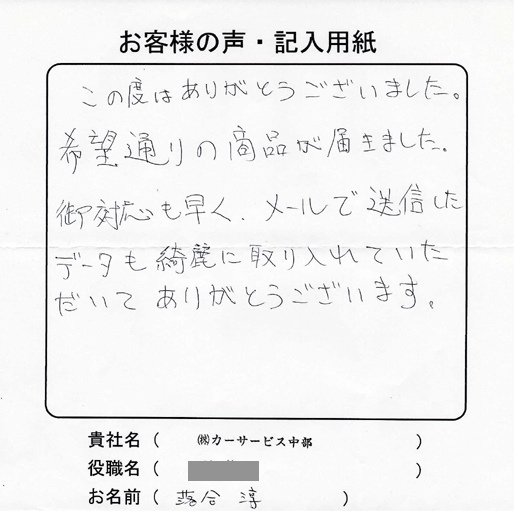 お客様の声・記入用紙
この度はありがとうございました。
希望通りの商品が届きました。
御対応も早く、メールで送信した
データも綺麗に取り入れていた
だいてありがとうございます。
貴社名（　㈱カーサービス中部　）
役職名（　）
お名前（　落合 淳　）